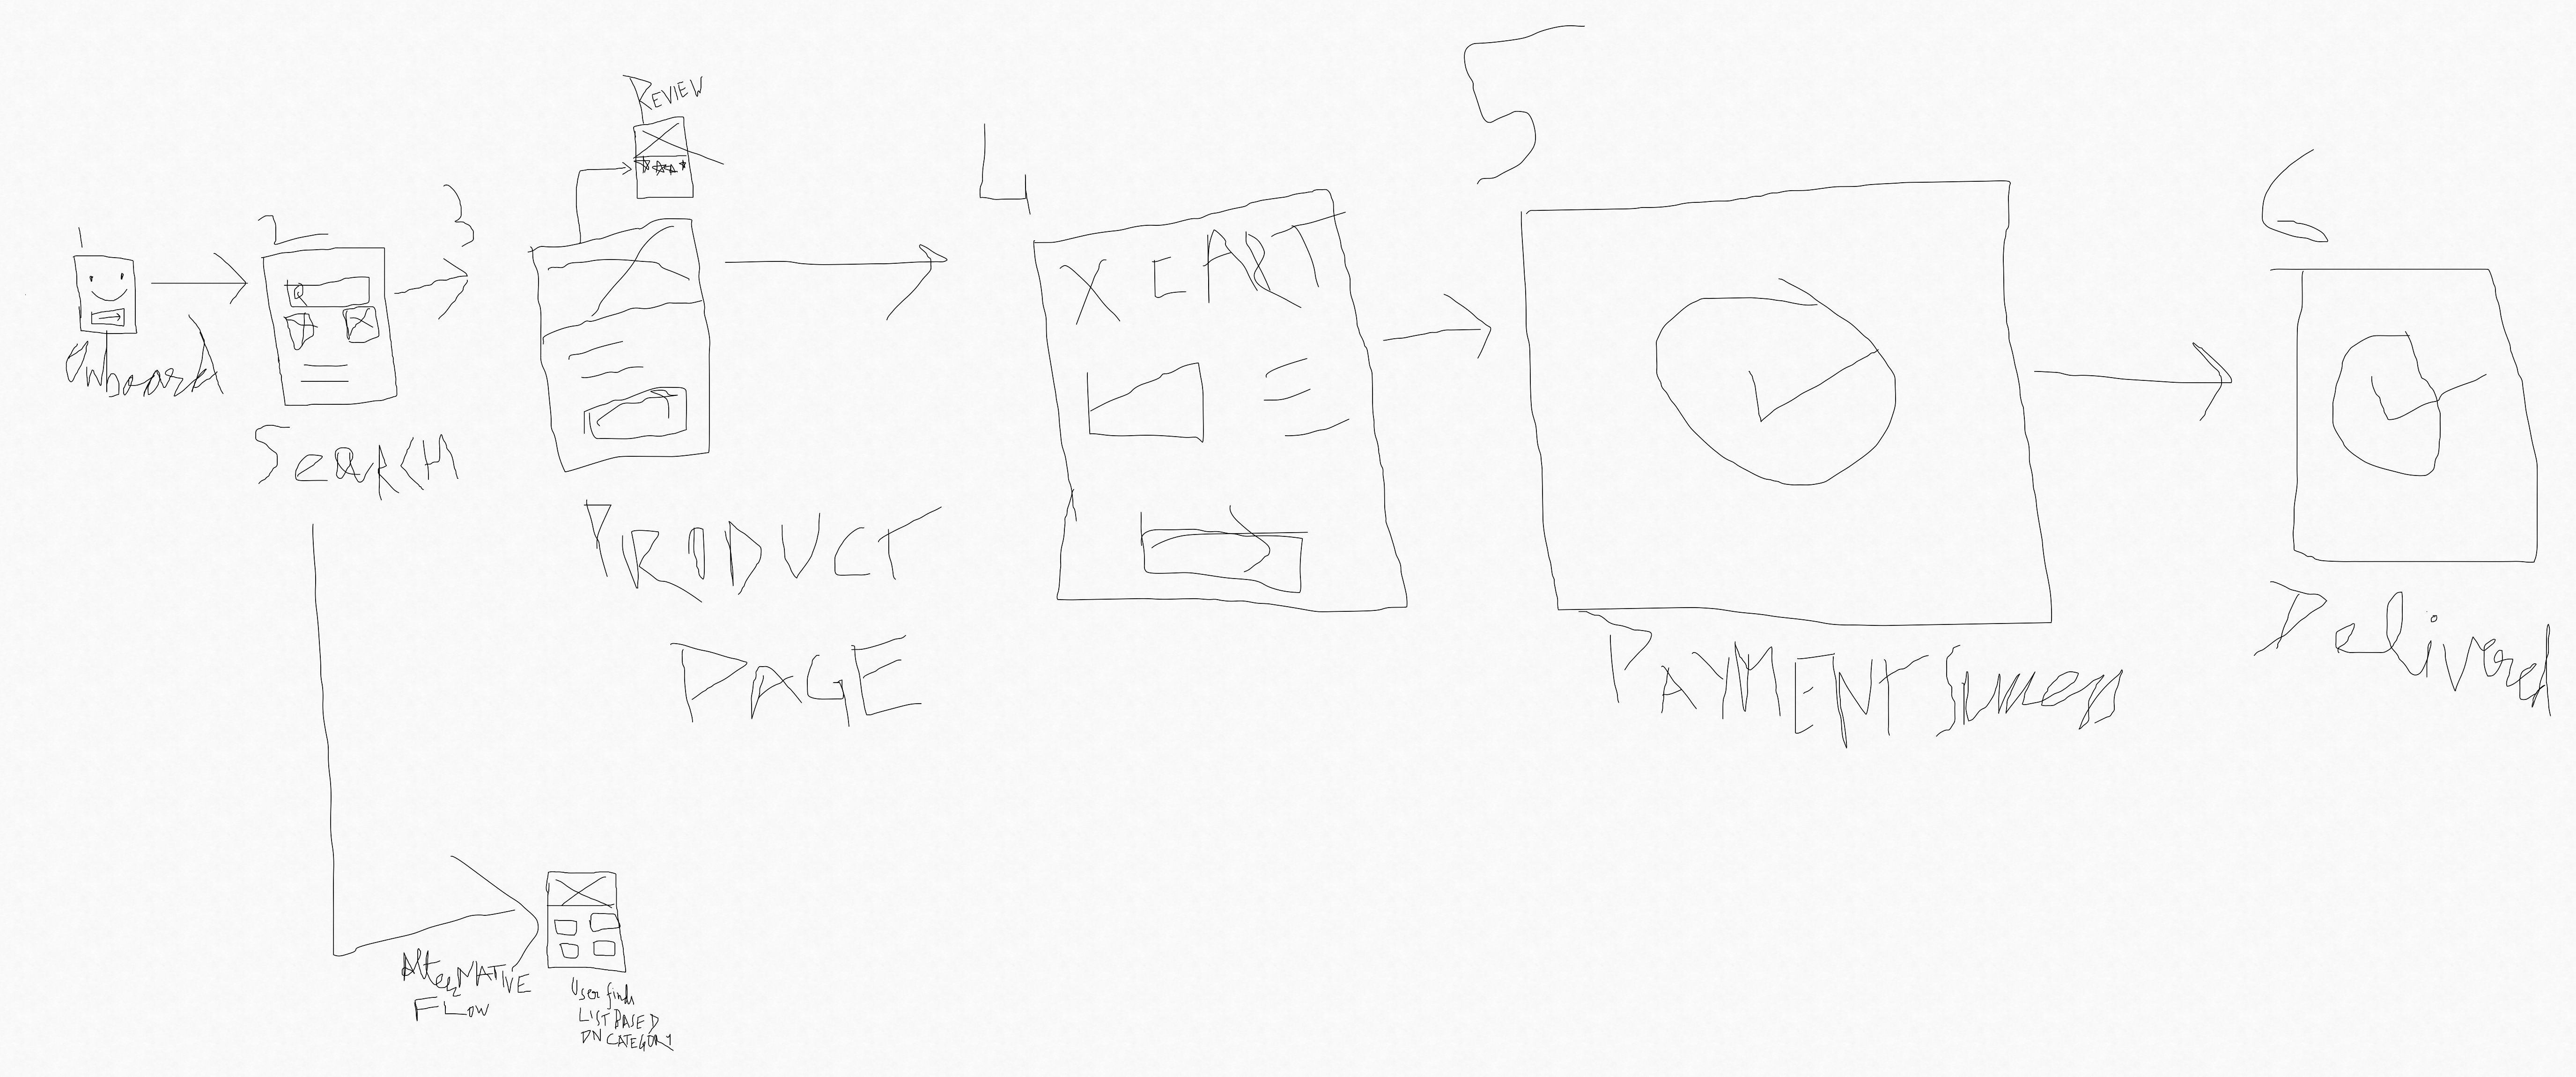 1
Onboard
2
Search
3
REVIEW
PRODUCT
PAGE
4
X CART
5
PAYMENT Success
6
Delivered
AlterNATIVE
FLOW
User finds
LIST BASED
ON CATEGORY